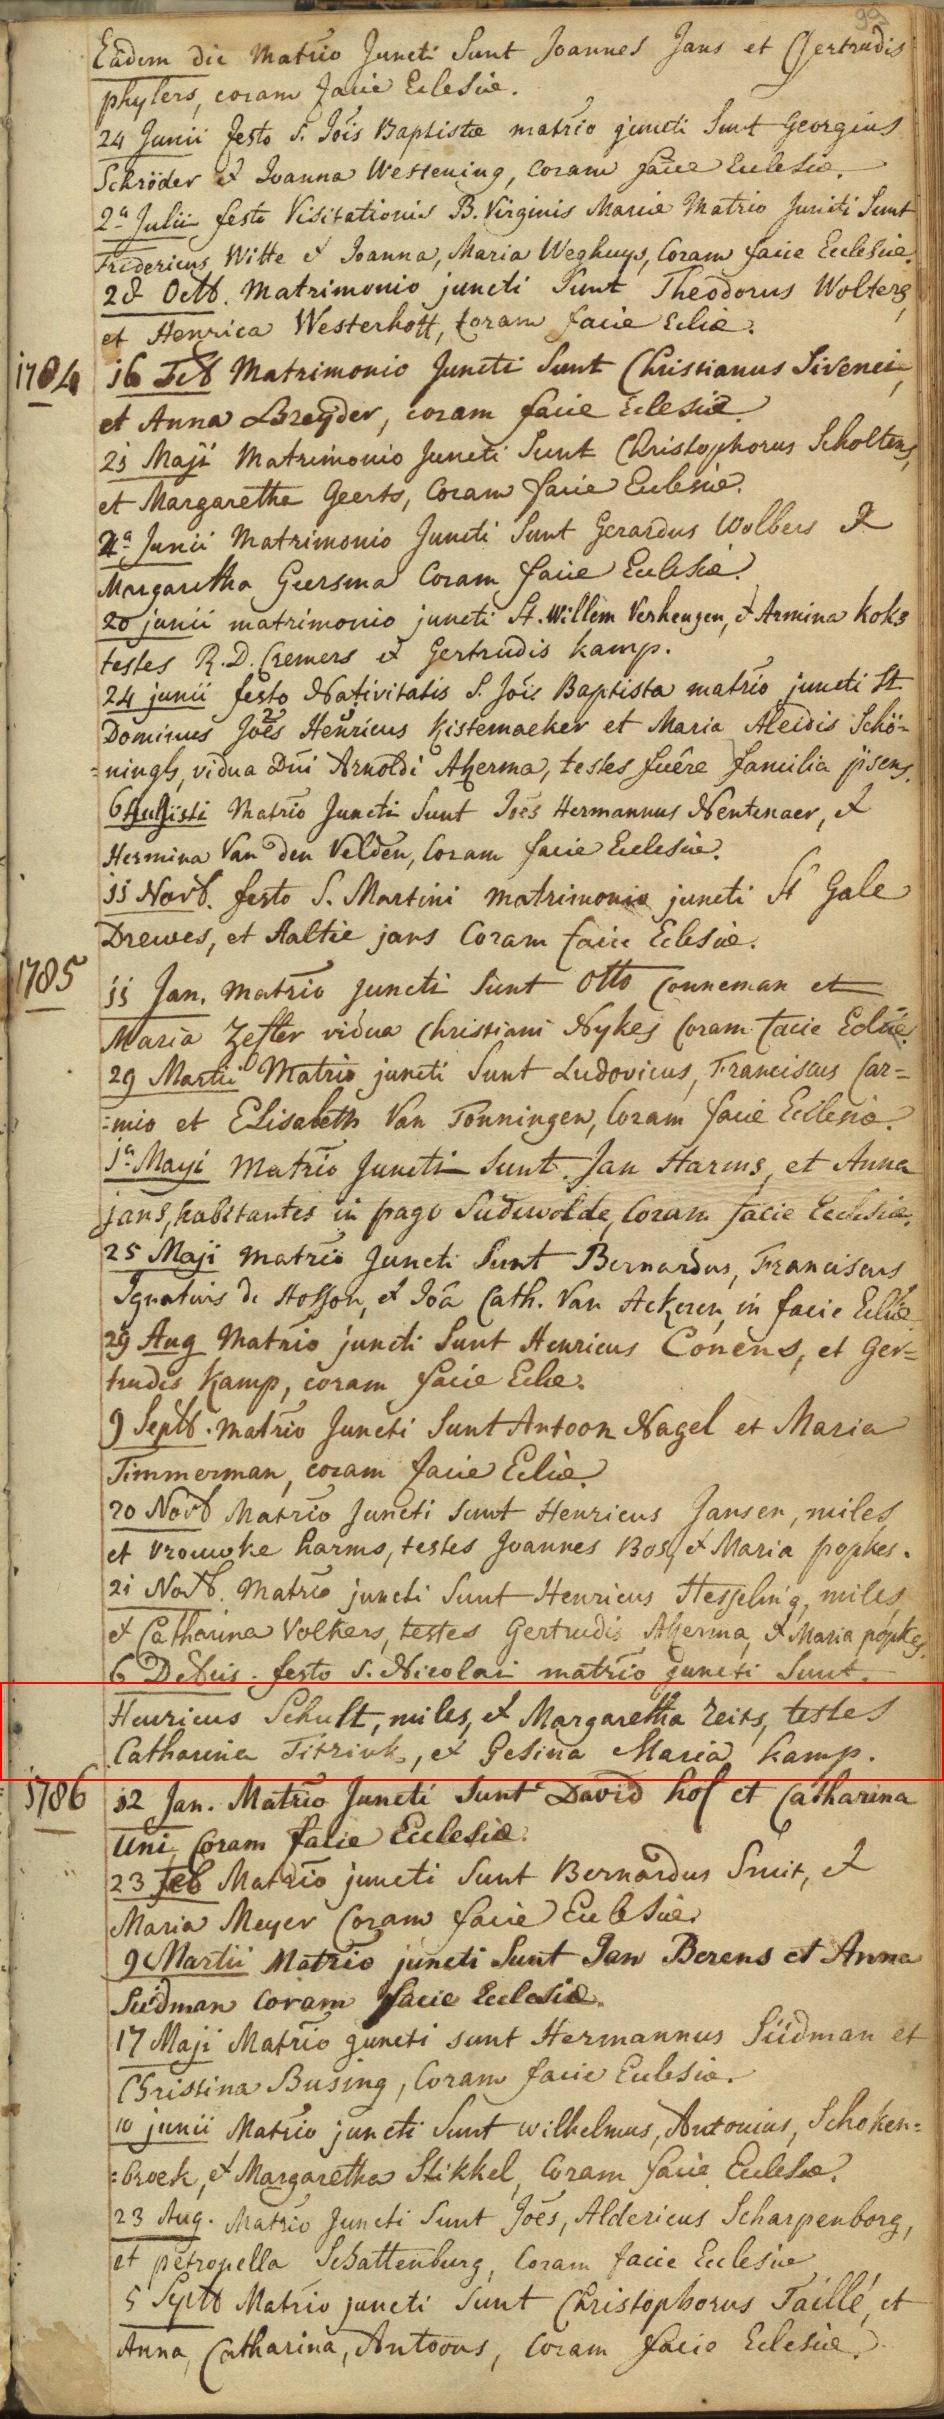 Eâdem die Matrio Juncti Sunt Joannes Jans et Gertrudis
phylers, coram facie Eclesiæ.
24 Junii festo S. Jois Baptistæ matrio juncti Sunt Georgius
Schröder et Joanna Westening, coram facie Eclesiæ.
2a Julii festo Visitationis B. Virginis Mariæ Matrio Juncti Sunt
Fridericus Witte et Joanna, Maria Weghuys, Coram facie Ecclesiæ.
28 Octb. Matrimonio juncti Sunt Theodorus Wolters,
et Henrica Westerhoff, Coram facie Ecliæ.
1784 16 Feb Matrimonio Juncti Sunt Christianus
et Anna Breyder, coram facie Eclesiæ
21 Maji Matrimonio Juncti Sunt Christophorus Scholtens,
et Margaretha Geerts, Coram facie Eclesiæ.
2a Junii Matrimonio Juncti Sunt Gerardus Wolbers et
Margaretha Geersma Coram facie Eclesiæ.
20 junii matrimonio juncti St. Willem Verheugen, et Armina koks
testes R. D. Cremers et Gertrudis kamp.
24 junii festo Nativitatis S. Jois Baptista matrio juncti St
Dominus Joës Henricus kistemaeker et Maria Aleidis Schö=
=ningh, vidua Dni Arnoldi Akerma, testes fuêre familia ipsens.
6 Augusti Matrio Juncti Sunt Joës Hermannus Nentenaer, et
Hermina Van den Velden, Coram facie Ecclesiæ.
11 Novb. festo S. Martini matrimonio juncti St Gale
Drewes, et Aaltie jans Coram facie Eclesiæ.
1785 11 Jan. Matrio juncti Sunt Otto Conneman et
Maria Zefler vidua Christiani Nykes Coram facie Ecliæ.
29 Martii Matrio juncti Sunt Ludovicus, Franciscus Car=
=mio et Elisabeth Van Tonningen, Coram facie Eclesiæ.
1a Mayi Matrio Juncti Sunt Jan Harms, et Anna
jans, habitantes in pago Suduwolde, Coram facie Ecclesiæ.
25 Maji Matrio Juncti Sunt Bernardus, Franciscus
Ignatius de Hosson, et Joâ Cath. Van Ackeren, in facie Ecliæ
29 Aug Matrio juncti Sunt Henricus Conens, et Ger=
trudis Kamp, coram facie Eclie.
9 Septb. matrio Juncti Sunt Antoon Nagel et Maria
Timmerman, coram facie Ecliæ
20 Novb Matrio Juncti Sunt Henricus Jansen, miles,
et vrouwke harms, testes Joannes Bos, et Maria popkes.
21 Novb. Matrio juncti Sunt Henricus Hesseling, miles
et Catharina Volkers, testes Gertrudis Akerma, et Maria popkes.
6 Debris. festo S. Nicolai matrio juncti Sunt.
Henricus Schult, miles, et Margaretha Zeits, testes
Catharina Titzink, et Gesina Maria kamp.
1786 12 Jan. Matrio Juncti Sunt David hof et Catharina
Uni, Coram facie Ecclesiæ.
23 Feb Matrio juncti Sunt Bernardus Smit, et
Maria Meyer Coram facie Eclesiæ.
9 Martii Matrio juncti Sunt Jan Berens et Anna
Südman Coram facie Ecclesiæ.
17 Maji Matrio juncti sunt Hermannus Südman et
Christina Busing, Coram facie Eclesiæ.
10 junii Matrio juncti Sunt Wilhelmus, Antonius, Schoken=
=broek, et Margaretha Stikkel, Coram facie Eclesiæ.
23 Aug. Matrio Juncti Sunt Joës, Aldericus Scharpenborg,
et petronella Schattenburg, Coram facie Ecclesiæ
5 Septb Matrio juncti Sunt Christophorus Taillé, et
Anna, Catharina, Antoons, Coram facie Eclesiæ.